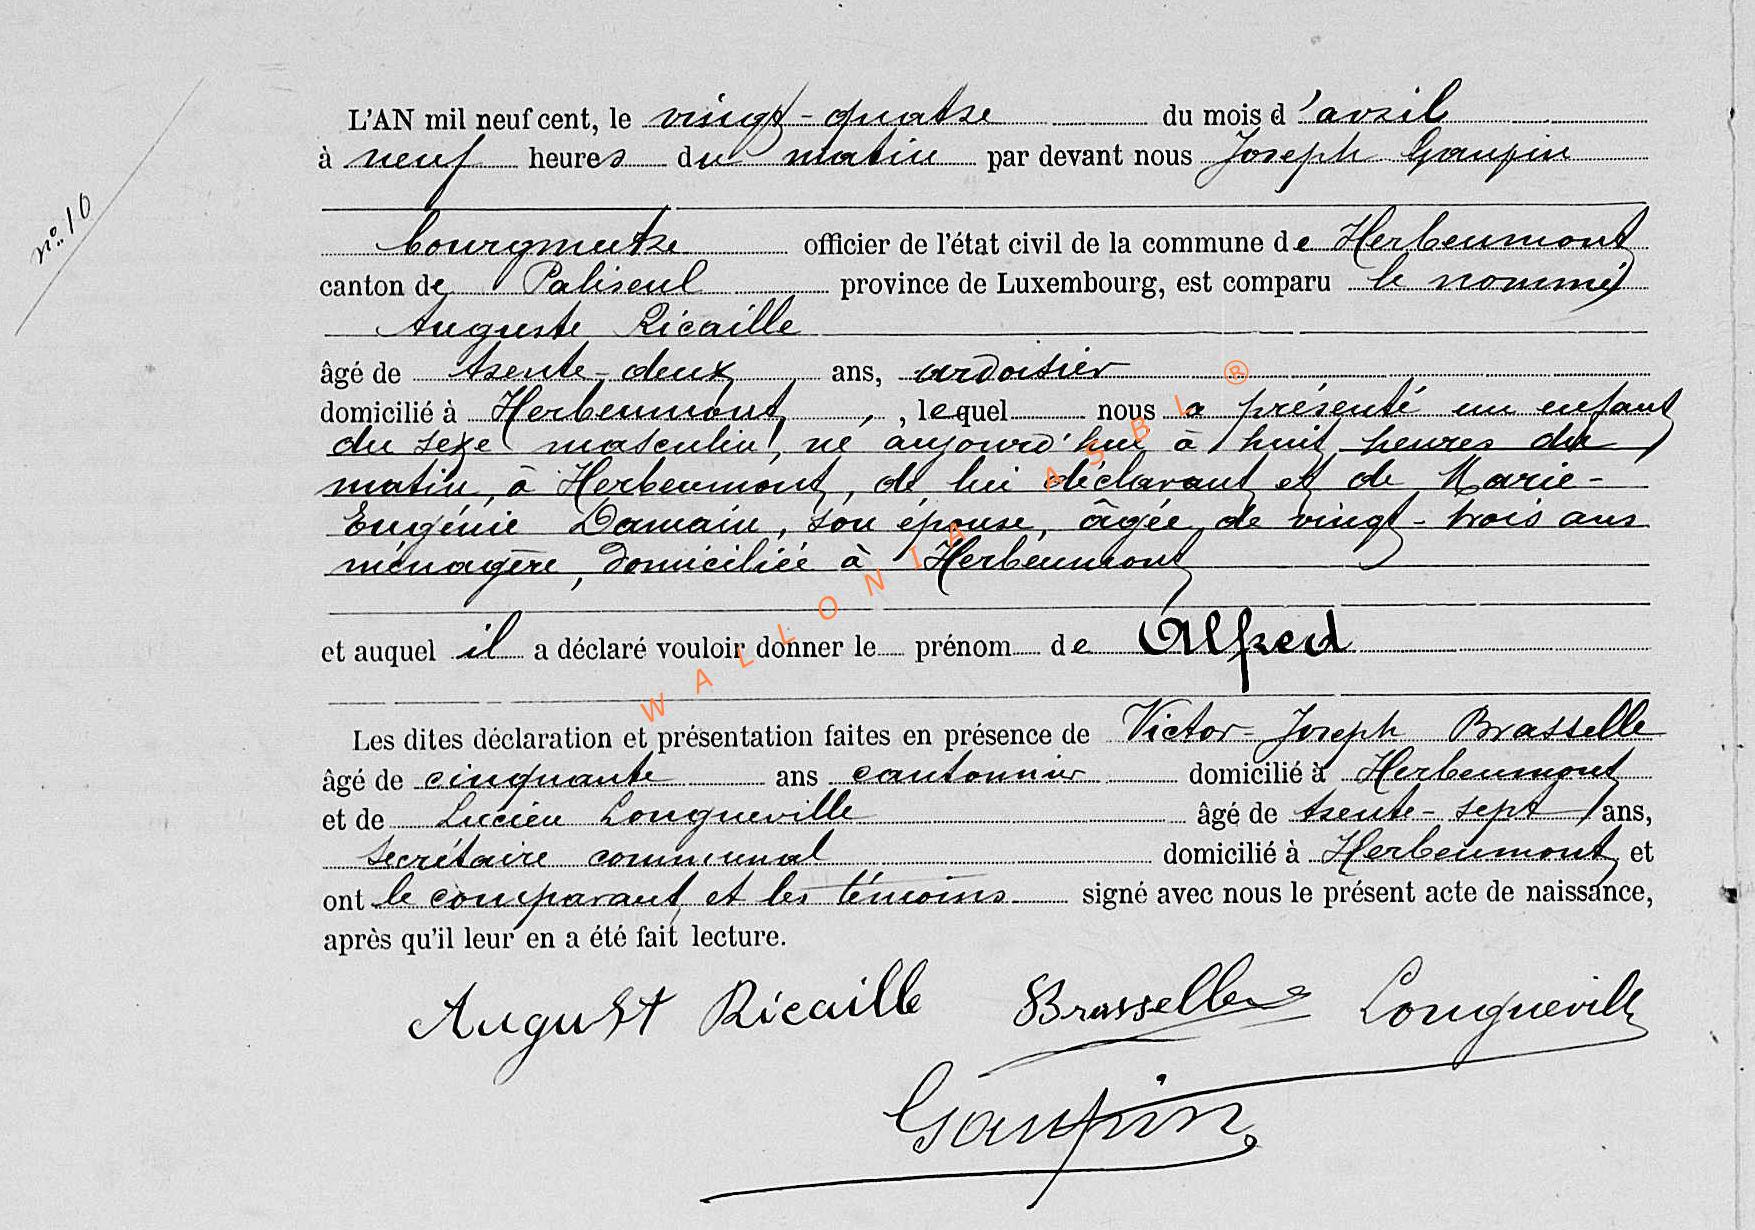 n.° 16
L'AN mil neuf cent, le vingt-quatre du mois d'avril
à neuf heures du matin par devant nous Joseph Gaupin
bourgmestre officier de l'état civil de la commune de Herbeumont
canton de Paliseul province de Luxembourg, est comparu le nommé
Auguste Ricaille
âgé de trente-deux ans, ardoisier
domicilié à Herbeumont, lequel nous a présenté un enfant
du sexe masculin, né aujourd'hui à huit heures du
matin, à Herbeumont, de lui déclarant et de Marie-
Eugénie Damain, son épouse, âgée de vingt-trois ans
ménagère, domiciliée à Herbeumont
et auquel il a déclaré vouloir donner le prénom de Alfred
Les dites déclaration et présentation faites en présence de Victor-Joseph Brasselle
âgé de cinquante ans cantonnier domicilié à Herbeumont
et de Lucien Longueville âgé de trente-sept ans,
secrétaire communal domicilié à Herbeumont et
ont le comparant et les témoins signé avec nous le présent acte de naissance,
après qu'il leur en a été fait lecture.
August Ricaille Brasselle Longueville
Gaupin
WALLONIA ASBL ®